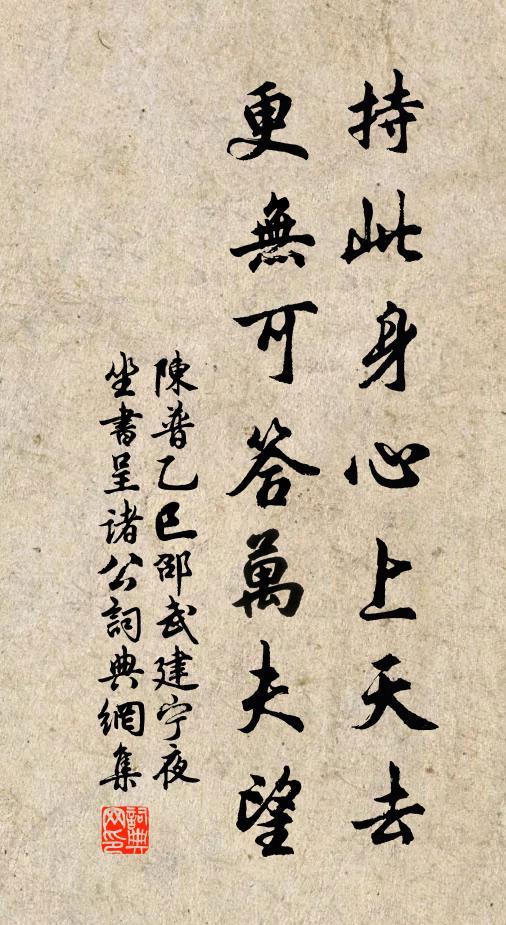 持此身心上天去
更無可答萬夫望
陳普乙巳邵武建宁夜
坐書呈诸公詞典網集
詞典网印